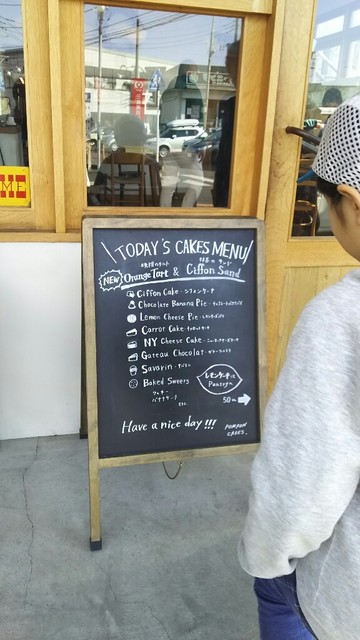 TODAY'S CAKES MENU
NEW Orange Tart & Ciffon Sand
Ciffon Cake・シフォンケーキ
Chocolate Banana Pie・チョコバナナパイ
Lemon Cheese Pie・レモンチーズパイ
Carrot Cake・キャロットケーキ
NY Cheese Cake・ニューヨークチーズケーキ
Gateau Chocolat・ガトーショコラ
Savarin・サバラン
Baked Sweets
クッキー
etc.
レモンケーキは
Pantryへ
50m
Have a nice day!!!
POMPON
CAKES.
ME